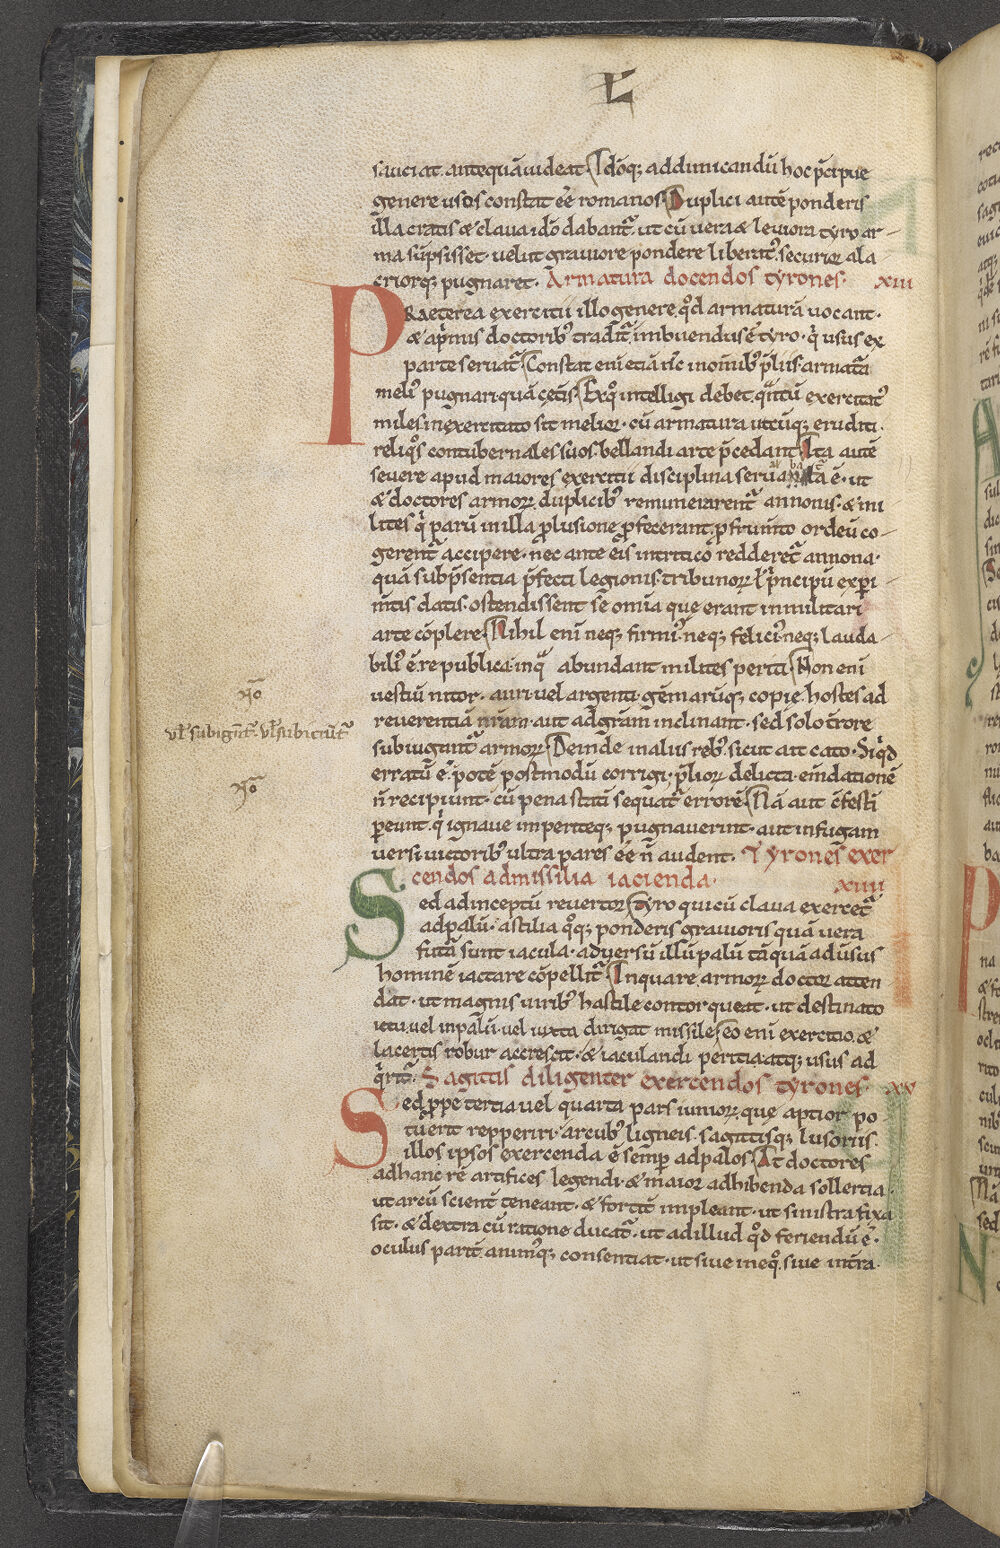 L
sauciat. antequā uideat. Idōq; addimicandū hoc p̄cipue
genere usos constat eē romanos. Duplici autē ponderis
illa cratis & claua idō dabant̄. ut cū uera & leuiora tyro ar-
ma sūpsisset. uelut grauiore pondere liberat᷒. securior ala
criorq; pugnaret. Armatura docendos tyrones. xiii
PRaeterea exercitii illo genere qd̄ armaturā uocant.
& āp̄mis doctorib᷒ tradit̄. imbuendus ē tyro. q̇ usus ex
parte seruat̄. Constat enī etiā nc̄ in om̄ib᷒ p̄liis armata
meli᷒ pugnari quā cet̄is. Ex qo intelligi debet. qͣntū exercitat᷒
miles inexercitato sit melior. cū armatura utcūq; eruditi.
reliqͦs contubernales suos bellandi arte p̄cedant. Ita autē
seuere apud maiores exercitii disciplina seruata ē. ut
& doctores armoꝝ duplicib᷒ remunerarent̄ annonis. & mi
lites q̇ parū in illa ꝓlusione ꝓfecerant. ꝓ frum̄to ordeū co-
gerent̄ accipere. nec ante eis in tritico redderet̄ annona.
quā sub p̄sentia p̄fecti legionis. tribunoꝝ ł p̄ncipū exꝑi-
m̄tis datis. ostendissent se om̄ia que erant in militari
arte cōplere. Nihil enī neq; firmi᷒. neq; felici᷒. neq; lauda-
bili᷒ ē. re publica. in qͣ abundant milites periti. Non enī
uestiū nitor. auri uel argenti. gēmarūq; copie. hostes ad
reuerentiā nr̄am. aut ad gr̄am inclinant. sed solo t̄rore
subiugant̄ armoꝝ. Deinde in aliis reb᷒. sicut ait cato. Siq̇d
erratū ē. potē postmodū corrigi. p̄lioꝝ delicta. em̄dationē
n̄ recipiunt. cū pena statī sequat̄ errorē. Nā aut c̄festī
ꝑeunt. q̇ ignaue imperiteq; pugnauerint. aut in fugam
uersi. uictorib᷒ ultra pares eē n̄ audent. Tyrones exer
cendos ad missilia iacienda. xiiii
Sed ad inceptū reuertor. Tyro qui cū claua exercet̄
ad palū. astilia qͦq; ponderis grauioris quā uera
futͣ sunt iacula. aduersū illū palū tāquā aduersus
hominē iactare cōpellit̄. In qua re armoꝝ doctor atten
dat. ut magnis uirib᷒ hastile contorqueat. ut destinato
ictu uel in palū. uel iuxta dirigat missile. eo enī exercitio. &
lacertis robur accrescit. & iaculandi peritia atq; usus ad
q̇rit̄. Sagittis diligenter exercendos tyrones. xv
Sed ꝓpe tertia uel quarta pars iunioꝝ. que aptior po
tūerit repperiri. arcub᷒ ligneis. sagittisq; lusoriis.
illos ipsos exercenda ē semꝑ ad palos. At doctores
ad hanc rē artifices legendi. & maior adhibenda sollertia.
ut arcū scient̄ teneant. & fortit̄ impleant. ut sinistra fixa
sit. & dextra cū ratione ducat̄. ut ad illud qd̄ feriendū ē.
oculus parit̄ animusq; consentiat. ut siue in eqͦ. siue in t̄ra
ƚ subigūt̄. ƚ subiciūt̄